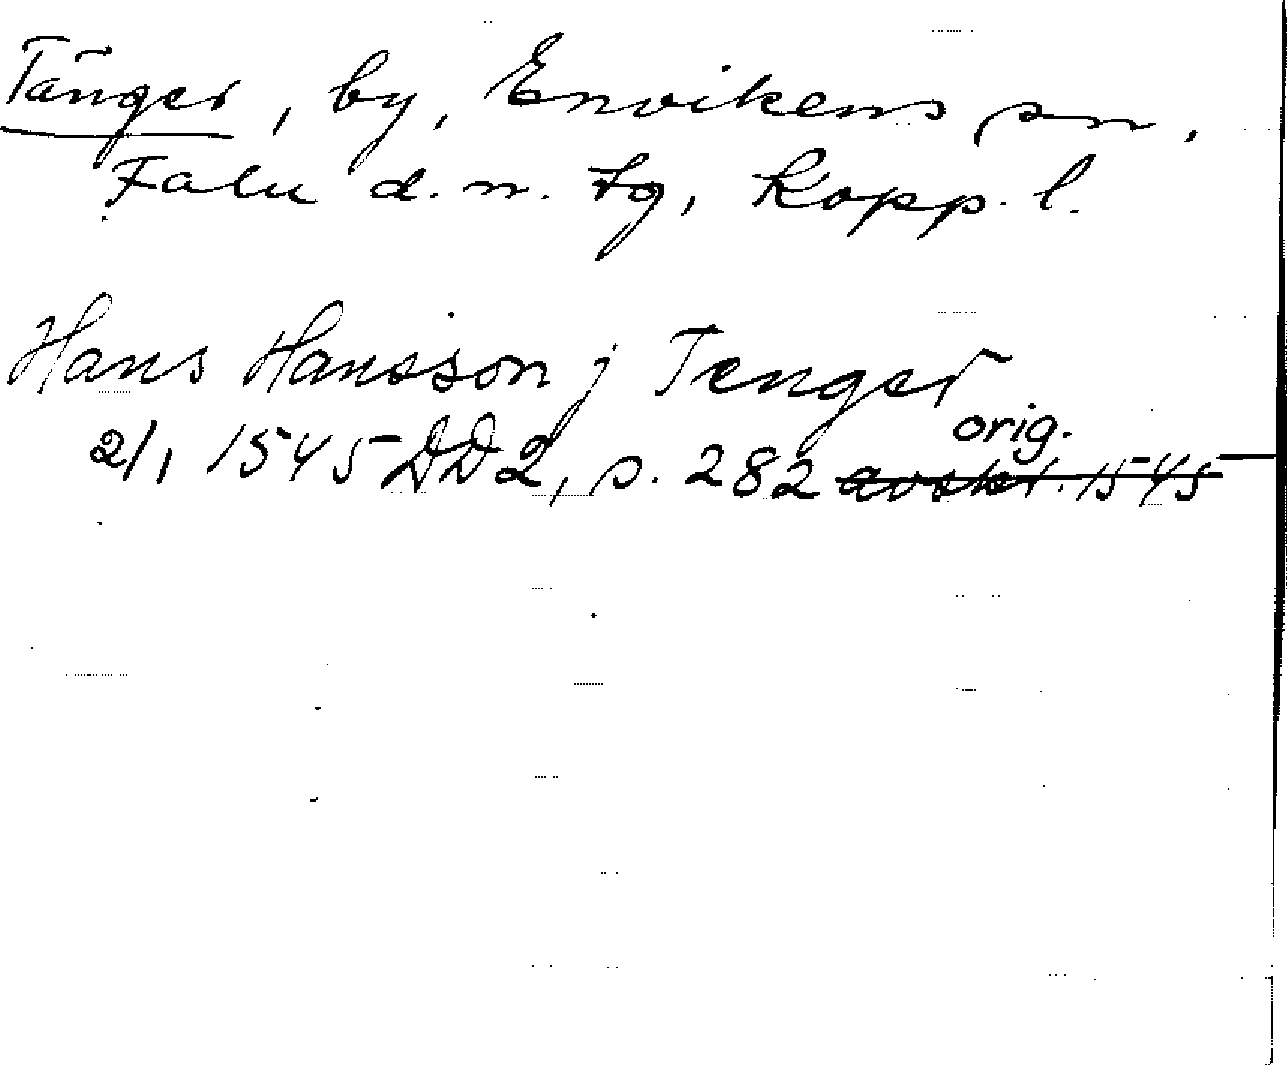 Tänger, by, Envikens sn,
Falu d. n. tg, Kopp. l.
Hans Hansson j Tenger
orig.
2/1 1545 DD2, s. 282 avskr. 1545